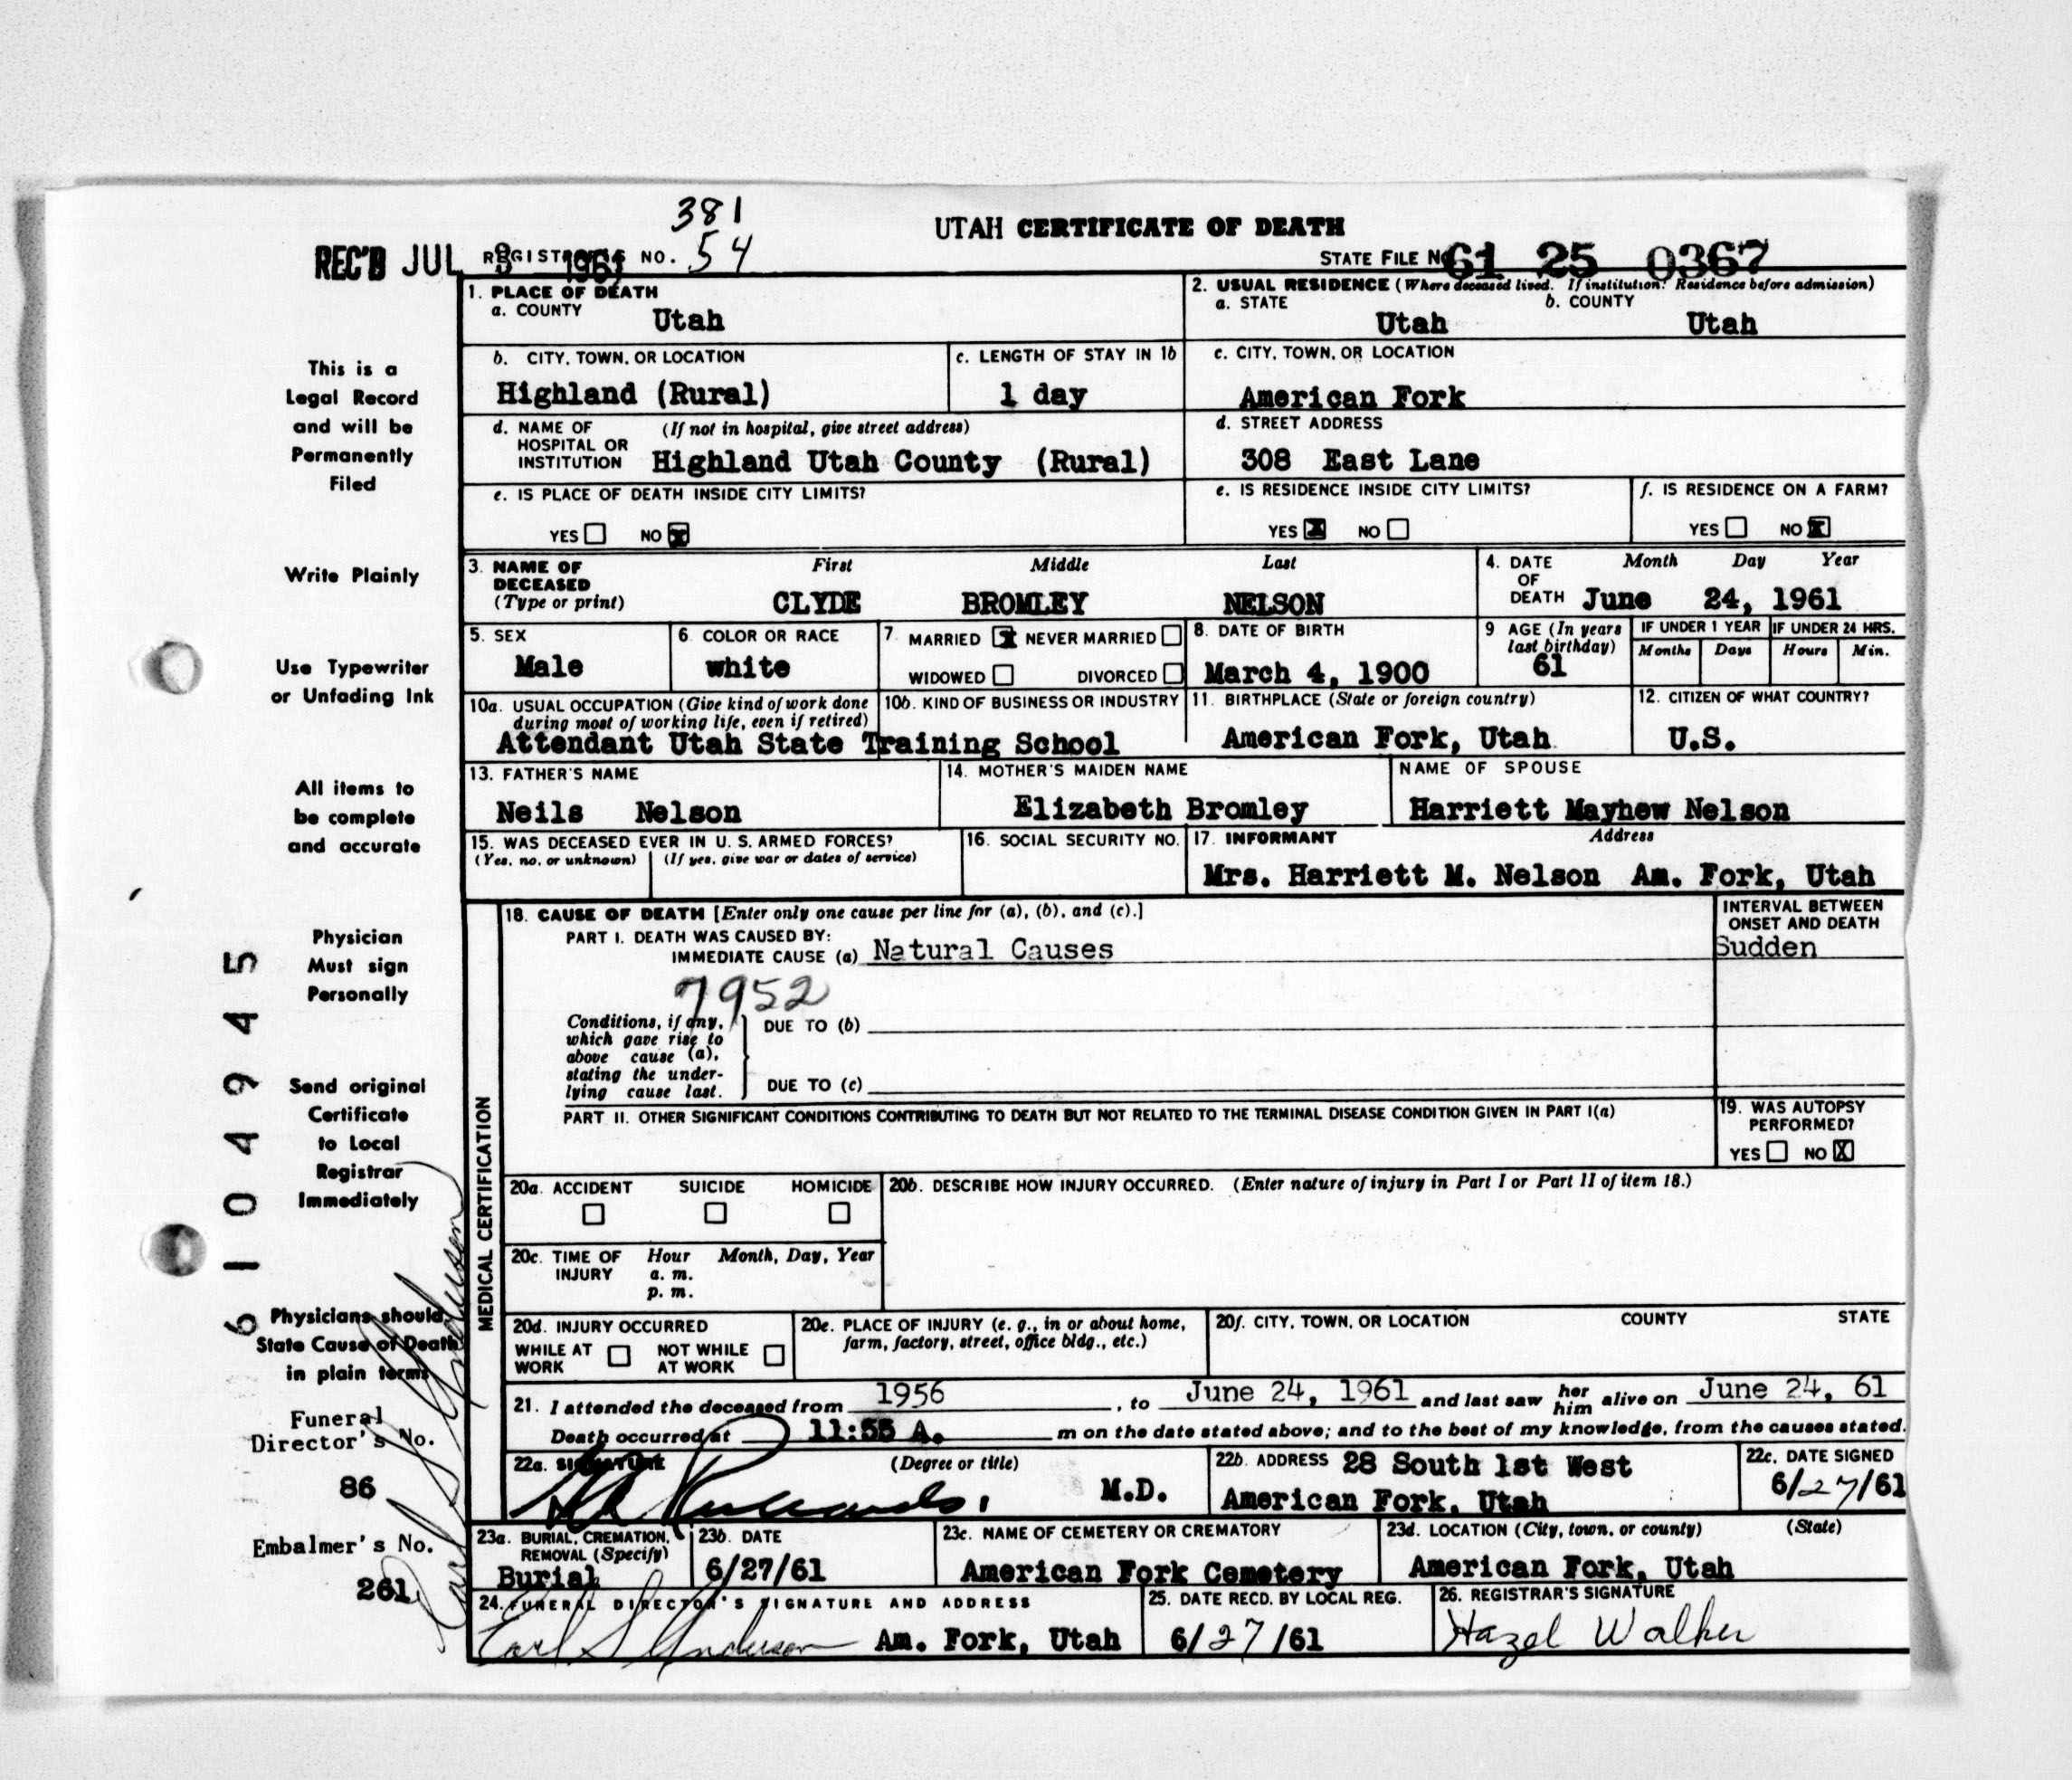 381
UTAH CERTIFICATE OF DEATH
REC'D JUL 3 1961 REGISTRAR'S NO. 54 STATE FILE NO. 61 25 0367
1. PLACE OF DEATH
a. COUNTY Utah
2. USUAL RESIDENCE (Where deceased lived. If institution: Residence before admission)
a. STATE Utah b. COUNTY Utah
b. CITY, TOWN, OR LOCATION
Highland (Rural)
c. LENGTH OF STAY IN 1b
1 day
c. CITY, TOWN, OR LOCATION
American Fork
d. NAME OF HOSPITAL OR INSTITUTION (If not in hospital, give street address)
Highland Utah County (Rural)
d. STREET ADDRESS
308 East Lane
e. IS PLACE OF DEATH INSIDE CITY LIMITS?
YES NO X
e. IS RESIDENCE INSIDE CITY LIMITS?
YES X NO
f. IS RESIDENCE ON A FARM?
YES NO X
3. NAME OF DECEASED (Type or print)
First Middle Last
CLYDE BROMLEY NELSON
4. DATE OF DEATH Month Day Year
June 24, 1961
5. SEX
Male
6. COLOR OR RACE
white
7. MARRIED X NEVER MARRIED
WIDOWED DIVORCED
8. DATE OF BIRTH
March 4, 1900
9 AGE (In years last birthday)
61
IF UNDER 1 YEAR IF UNDER 24 HRS.
Months Days Hours Min.
10a. USUAL OCCUPATION (Give kind of work done during most of working life, even if retired)
10b. KIND OF BUSINESS OR INDUSTRY
Attendant Utah State Training School
11. BIRTHPLACE (State or foreign country)
American Fork, Utah
12. CITIZEN OF WHAT COUNTRY?
U.S.
13. FATHER'S NAME
Neils Nelson
14. MOTHER'S MAIDEN NAME
Elizabeth Bromley
NAME OF SPOUSE
Harriett Mayhew Nelson
15. WAS DECEASED EVER IN U. S. ARMED FORCES?
(Yes, no, or unknown) (If yes, give war or dates of service)
16. SOCIAL SECURITY NO.
17. INFORMANT Address
Mrs. Harriett M. Nelson Am. Fork, Utah
MEDICAL CERTIFICATION
18. CAUSE OF DEATH [Enter only one cause per line for (a), (b), and (c).]
INTERVAL BETWEEN ONSET AND DEATH
PART I. DEATH WAS CAUSED BY:
IMMEDIATE CAUSE (a) Natural Causes Sudden
7952
Conditions, if any, which gave rise to above cause (a), stating the underlying cause last.
DUE TO (b)
DUE TO (c)
PART II. OTHER SIGNIFICANT CONDITIONS CONTRIBUTING TO DEATH BUT NOT RELATED TO THE TERMINAL DISEASE CONDITION GIVEN IN PART I(a)
19. WAS AUTOPSY PERFORMED?
YES NO X
20a. ACCIDENT SUICIDE HOMICIDE
20b. DESCRIBE HOW INJURY OCCURRED. (Enter nature of injury in Part I or Part II of item 18.)
20c. TIME OF INJURY Hour Month, Day, Year
a. m.
p. m.
20d. INJURY OCCURRED
WHILE AT WORK NOT WHILE AT WORK
20e. PLACE OF INJURY (e. g., in or about home, farm, factory, street, office bldg., etc.)
20f. CITY, TOWN, OR LOCATION COUNTY STATE
21. I attended the deceased from 1956, to June 24, 1961 and last saw her him alive on June 24, 61
Death occurred at 11:55 A. m on the date stated above; and to the best of my knowledge, from the causes stated.
22a. SIGNATURE (Degree or title)
M.D.
22b. ADDRESS 28 South 1st West
American Fork, Utah
22c. DATE SIGNED
6/27/61
23a. BURIAL, CREMATION, REMOVAL (Specify)
Burial
23b. DATE
6/27/61
23c. NAME OF CEMETERY OR CREMATORY
American Fork Cemetery
23d. LOCATION (City, town, or county) (State)
American Fork, Utah
24. FUNERAL DIRECTOR'S SIGNATURE AND ADDRESS
Earl S Anderson Am. Fork, Utah
25. DATE RECD. BY LOCAL REG.
6/27/61
26. REGISTRAR'S SIGNATURE
Hazel Walker
This is a
Legal Record
and will be
Permanently
Filed
Write Plainly
Use Typewriter
or Unfading Ink
All items to
be complete
and accurate
Physician
Must sign
Personally
Send original
Certificate
to Local
Registrar
Immediately
Physicians should
State Cause of Death
in plain terms
Funeral
Director's No.
86
Embalmer's No.
261
Earl S Anderson
6104945